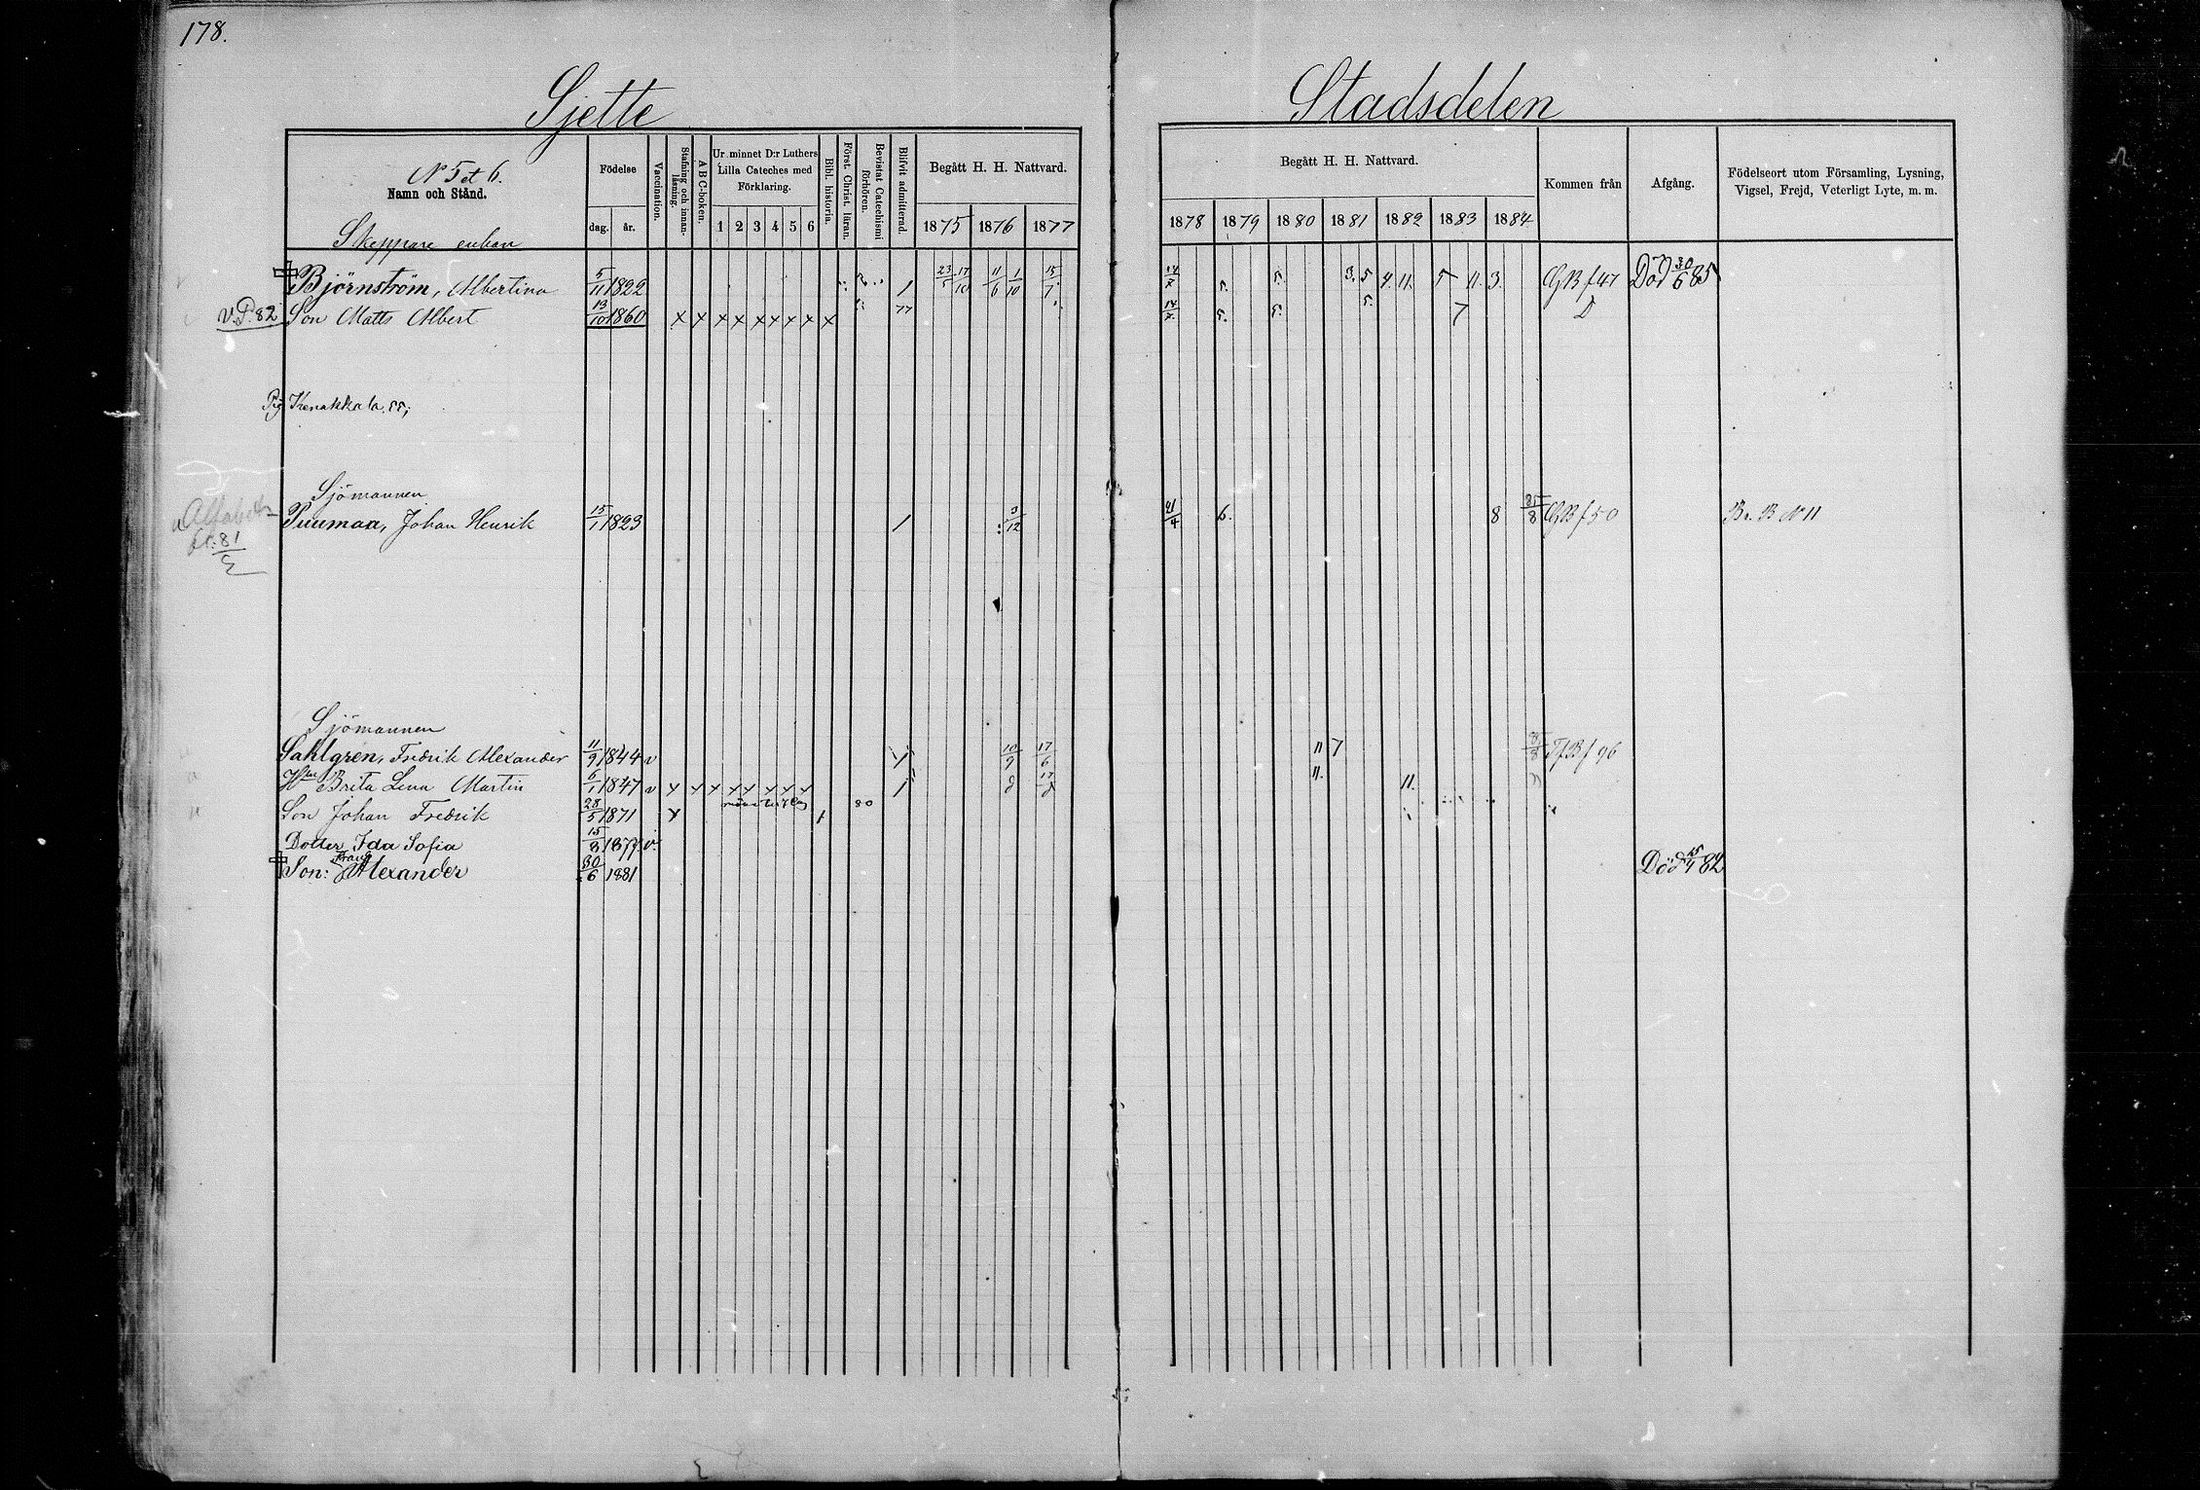 178.
Sjette Stadsdelen
No 5 et 6.
Namn och Stånd.
Födelse
dag. år.
Vaccination.
Stafning och innan-läsning.
A B C-boken.
Ur minnet D:r Luthers Lilla Cateches med Förklaring.
1 2 3 4 5 6
Bibl. historia.
Först. Christ. läran.
Bevistat Catechismi förhören.
Blifvit admitterad.
Begått H. H. Nattvard.
1875 1876 1877
Begått H. H. Nattvard.
1878 1879 1880 1881 1882 1883 1884
Kommen från
Afgång.
Födelseort utom Församling, Lysning, Vigsel, Frejd, Veterligt Lyte, m. m.
Skeppare enkan
Björnström, Albertina 5/11 1822 1 23/5 17/10 11/6 1/10 15/7 14/7 5. 5. 3. 5 4. 11. 5 11. 3. GB f 47 Död 30/6 85
v. P. 82 Son Matts Albert 13/10 1860 x x x x x x x x x 77 14/7 5. 5. 5. 7 D
Sjömannen
Puumaa, Johan Henrik 15/1 1823 1 3/12 21/4 6. 8 85/8 GB f 50 Br. B No 11
81
Sjömannen
Sahlgren, Fredrik Alexander 11/9 1844 v 1 10/9 17/6 11 7 96
Brita Lena Martin 6/1 1847 v x x x x x x x x 1 d 11. 11.
Son Johan Fredrik 28/5 1871 x 80
Dotter Ida Sofia 15/8 1877 v.
Son: Frans Alexander 30/6 1881 Död 15/4 82